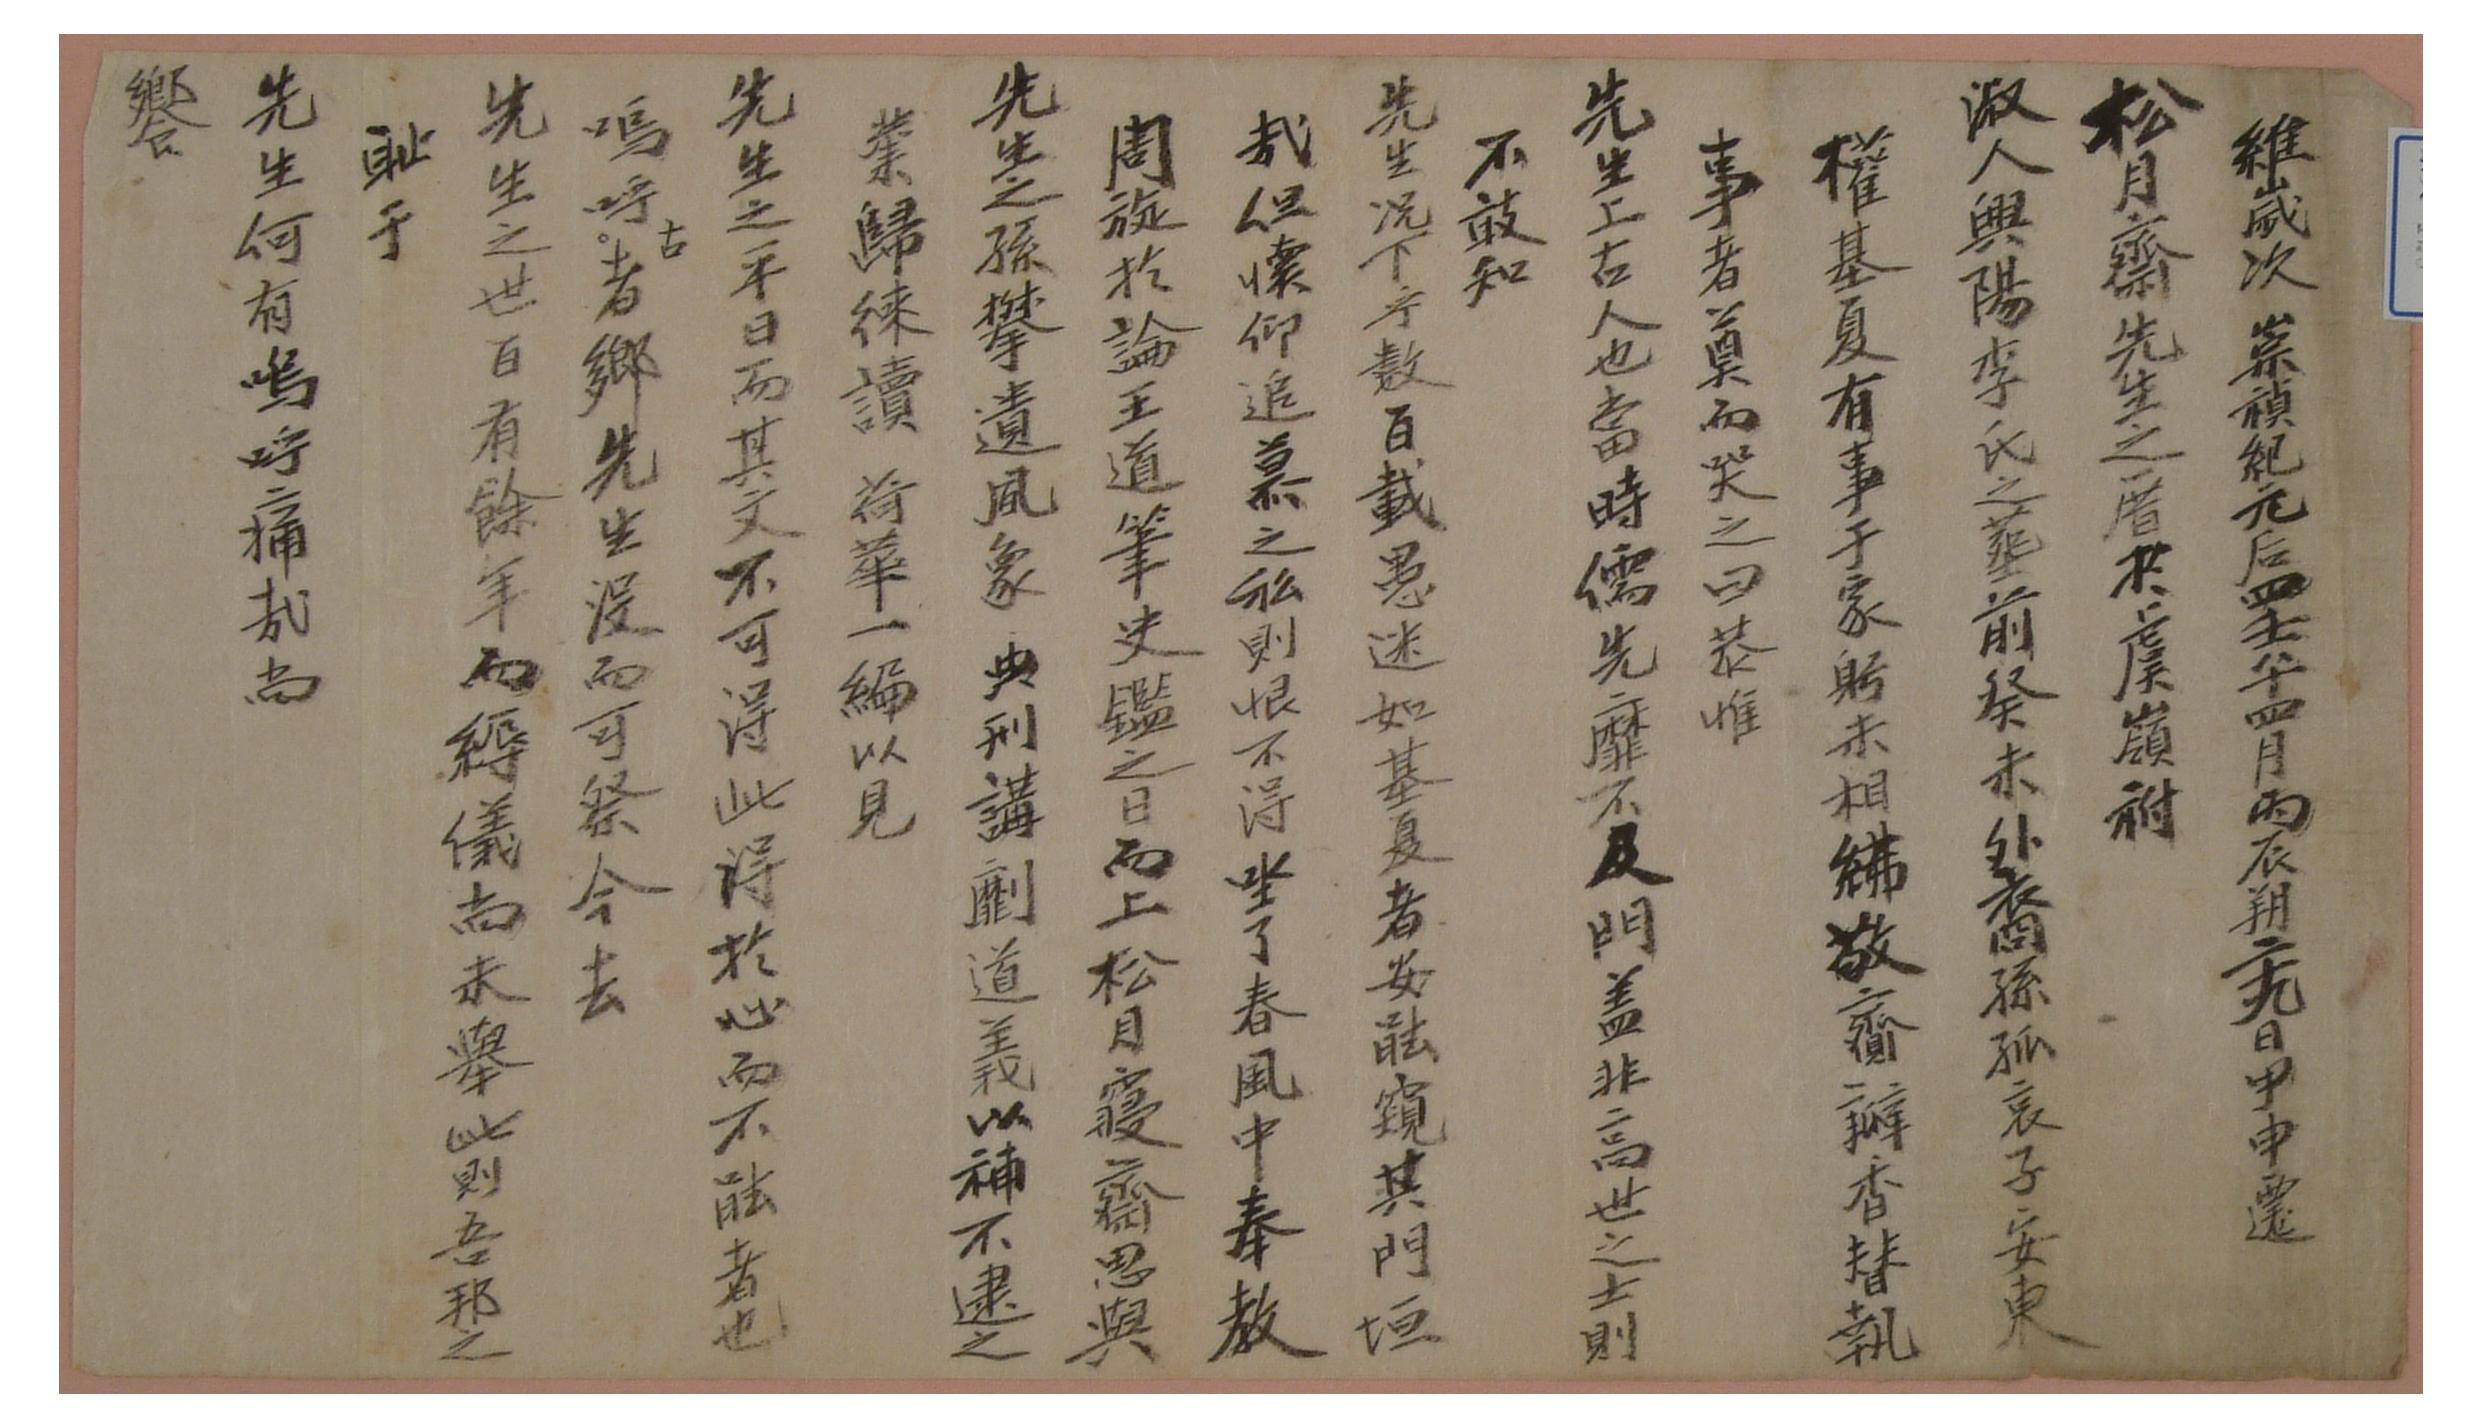 維歲次 崇禎紀元后四壬午四月丙辰朔二十九日甲申遷
松月齋先生之厝于虎嶺祔
淑人興陽李氏之塋前癸未外裔孫孤哀子安東
權基夏有事于家躬未相紼敬齎瓣香替執
事者奠而哭之曰恭惟
先生上古人也當時儒先靡不及門盖非高世之士則
不敢知
先生况下乎数百載愚迷如基夏者安能窺其門垣
哉但懷仰追慕之私則恨不得坐了春風中奉教
周旋於論王道筆史鑑之日而上松月寢齋思與
先生之孫攀遺風象典刑講劘道義以補不逮之
業歸徠讀荷華一編以見
先生之平日而其文不可得此得於心而不能者也
嗚呼古者鄉先生沒而可祭今去
先生之世百有餘年而縟儀尚未擧此則吾邦之
耻于
先生何有嗚呼痛哉尚
饗